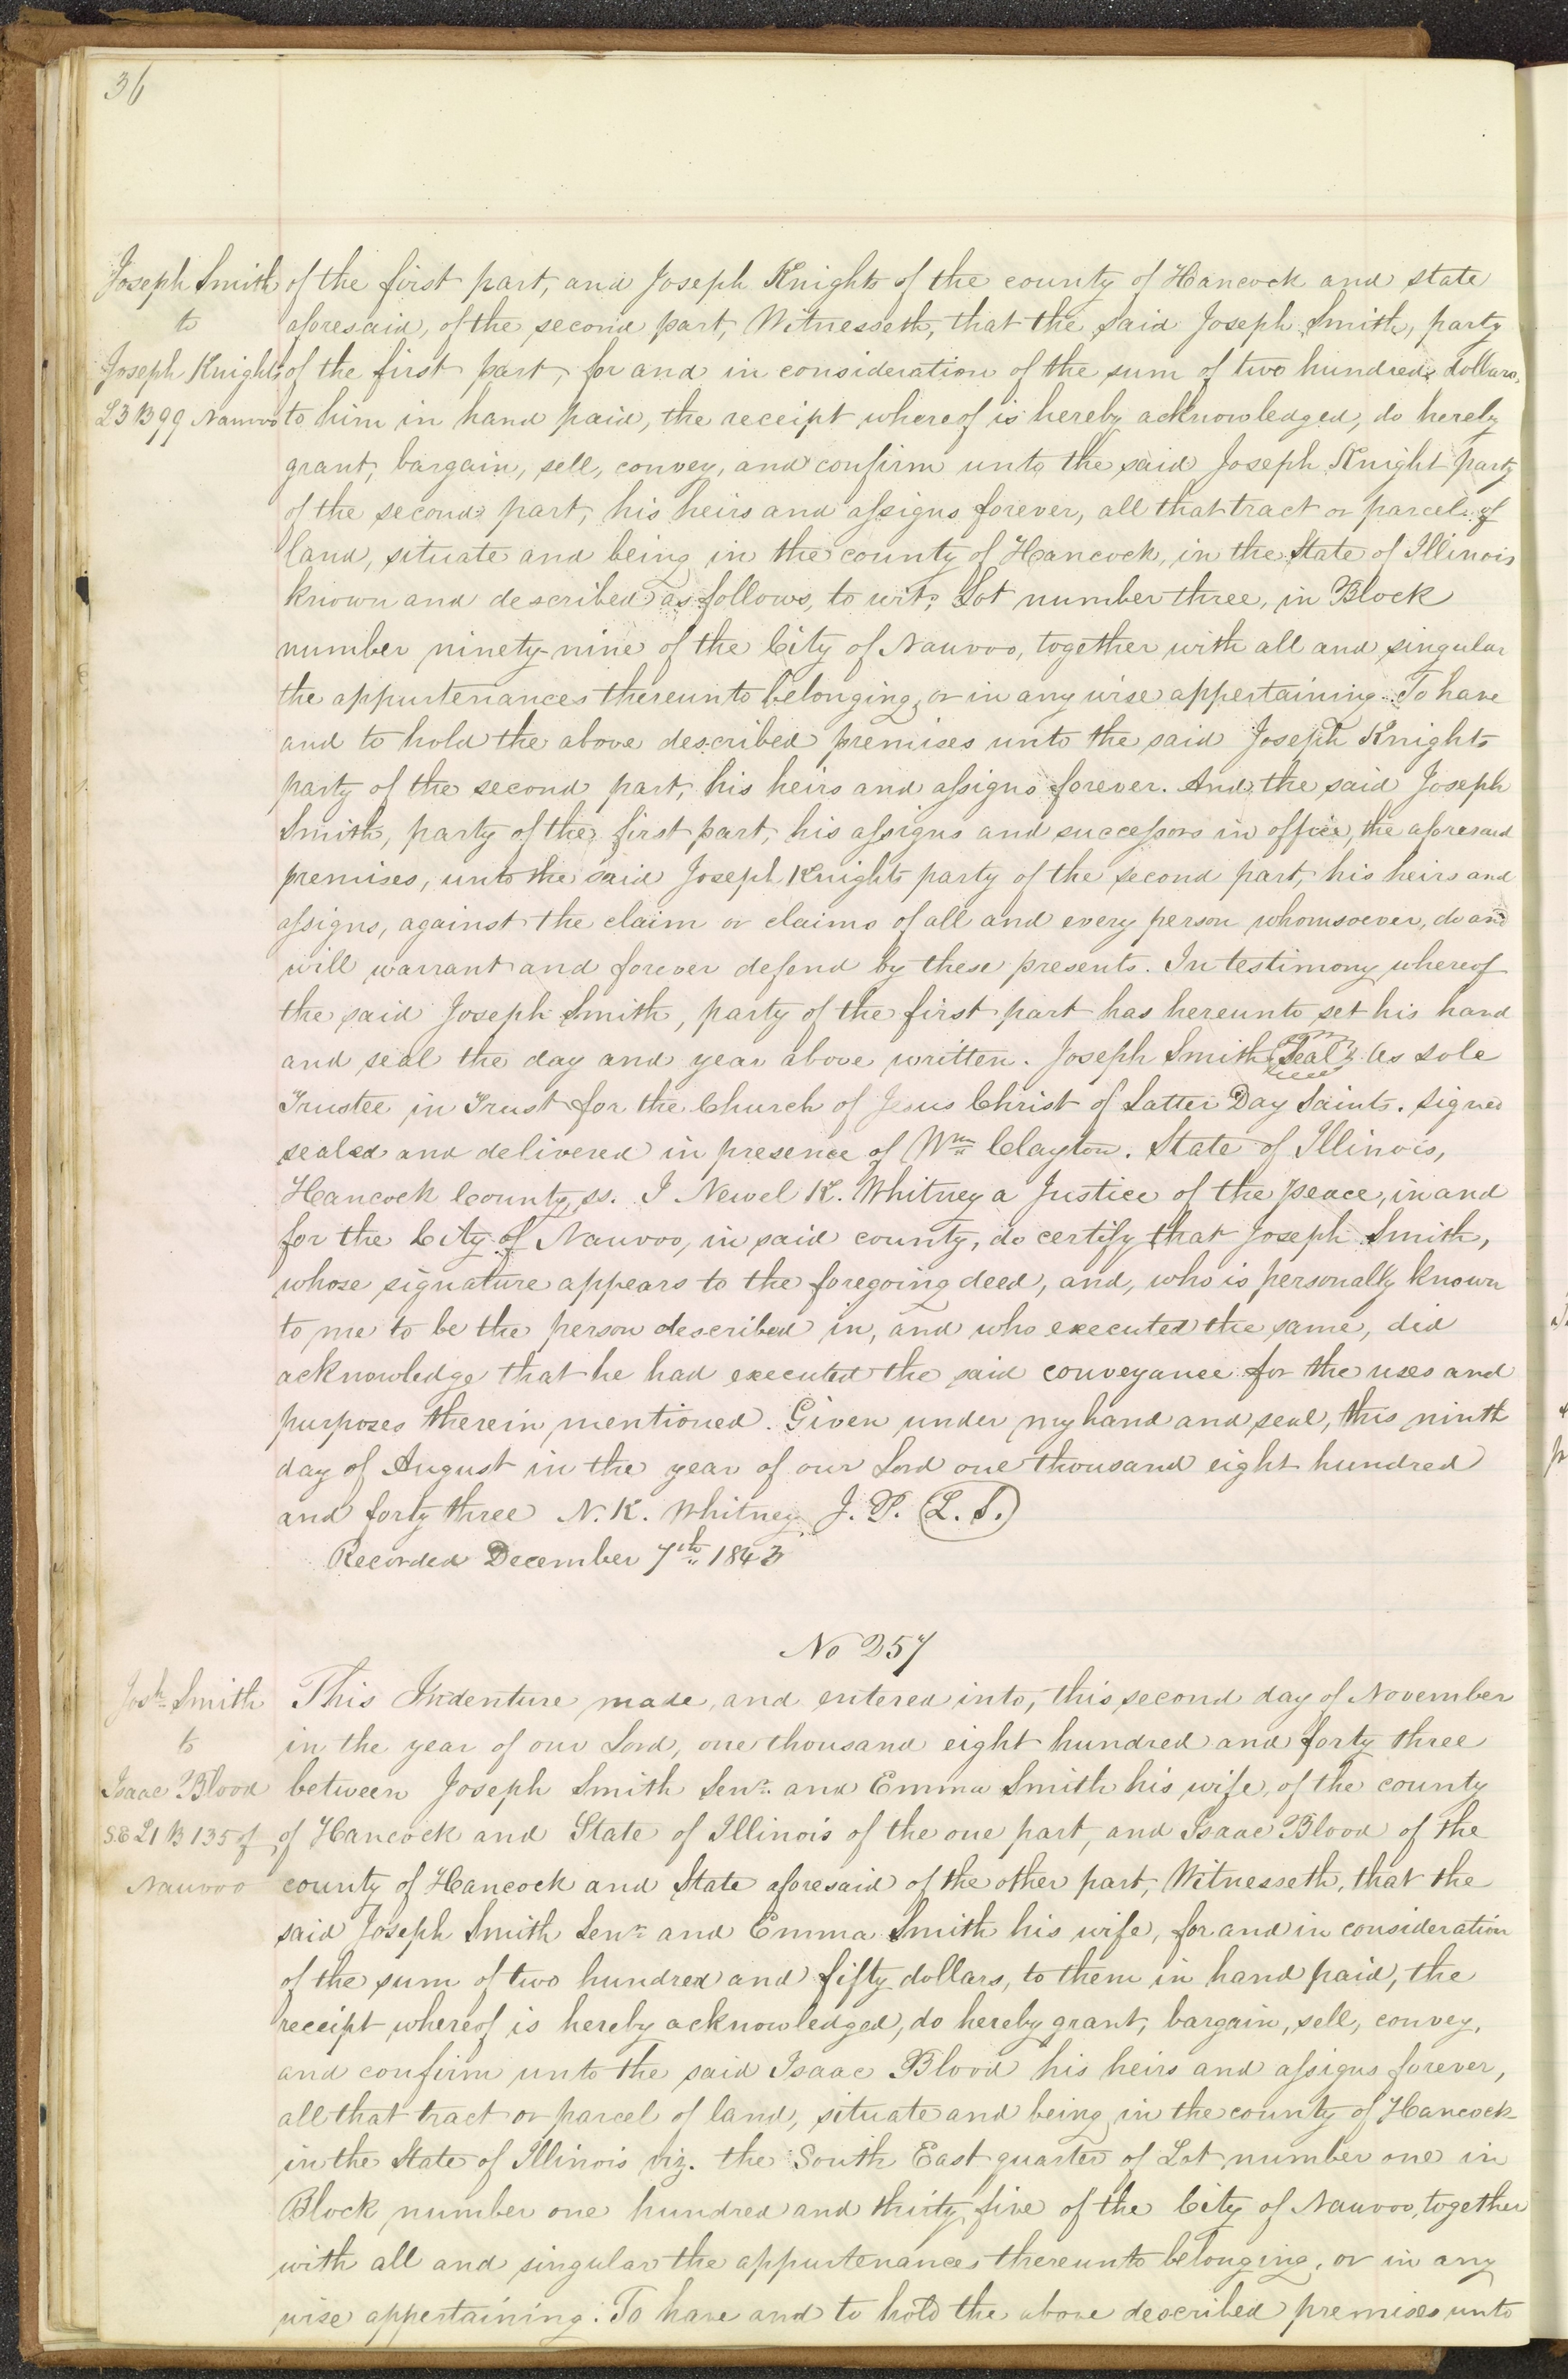 36
Joseph Smith
to
Joseph Knight
L3 B 99 Nauvoo
of the first part, and Joseph Knight of the county of Hancock and state
aforesaid, of the second part, Witnesseth, that the said Joseph Smith, party
of the first part, for and in consideration of the sum of two hundred dollars,
to him in hand paid, the receipt whereof is hereby acknowledged, do hereby
grant, bargain, sell, convey, and confirm unto the said Joseph Knight party
of the second part, his heirs and assigns forever, all that tract or parcel of
land, situate and being in the county of Hancock, in the State of Illinois
known and described as follows, to wit; Lot number three, in Block
number ninety-nine of the City of Nauvoo, together with all and singular
the appurtenances thereunto belonging, or in any wise appertaining. To have
and to hold the above described premises unto the said Joseph Knight
party of the second part, his heirs and assigns forever. And the said Joseph
Smith, party of the first part, his assigns and successors in office, the aforesaid
premises, unto the said Joseph Knight party of the second part, his heirs and
assigns, against the claim or claims of all and every person whomsoever, do and
will warrant and forever defend by these presents. In testimony whereof
the said Joseph Smith, party of the first part has hereunto set his hand
and seal the day and year above written. Joseph Smith Seal As sole
Trustee in Trust for the Church of Jesus Christ of Latter Day Saints. signed
sealed and delivered in presence of Wm Clayton. State of Illinois,
Hancock County, ss. I Newel K. Whitney a Justice of the peace, in and
for the City of Nauvoo, in said county, do certify that Joseph Smith,
whose signature appears to the foregoing deed, and, who is personally known
to me to be the person described in, and who executed the same, did
acknowledge that he had executed the said conveyance for the uses and
purposes therein mentioned. Given under my hand and seal, this ninth
day of August in the year of our Lord one thousand eight hundred
and forty three N. K. Whitney J. P. (L. S.)
Recorded December 7th 1843
No 257
Josh. Smith
to
Isaac Blood
S.E L1 B 135 of
Nauvoo
This Indenture made, and entered into, this second day of November
in the year of our Lord, one thousand eight hundred and forty three
between Joseph Smith Senr. and Emma Smith his wife, of the county
of Hancock and State of Illinois of the one part, and Isaac Blood of the
county of Hancock and State aforesaid of the other part, Witnesseth, that the
said Joseph Smith Senr. and Emma Smith his wife, for and in consideration
of the sum of two hundred and fifty dollars, to them in hand paid, the
receipt whereof is hereby acknowledged, do hereby grant, bargain, sell, convey,
and confirm unto the said Isaac Blood his heirs and assigns forever,
all that tract or parcel of land, situate and being in the county of Hancock
in the State of Illinois viz. the South East quarter of Lot number one in
Block number one hundred and thirty five of the City of Nauvoo, together
with all and singular the appurtenances thereunto belonging, or in any
wise appertaining. To have and to hold the above described premises unto